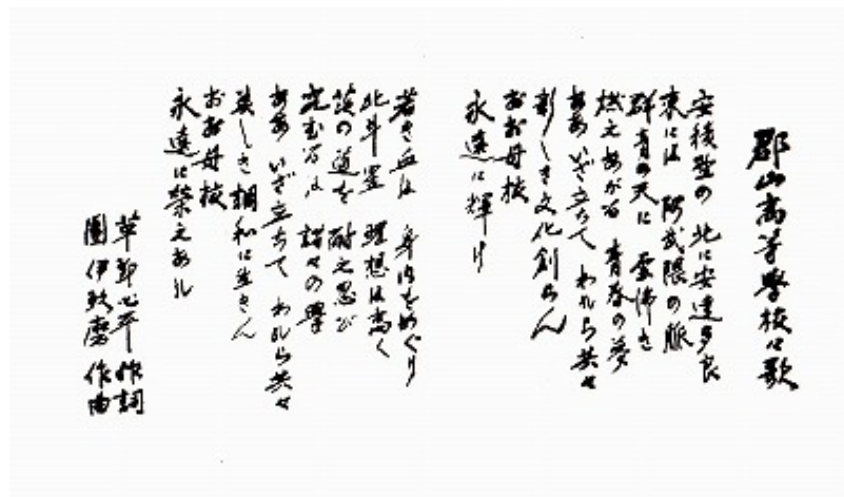 郡山高等學校校歌
安積野の 北に安達多良
東には 阿武隈の脈
群青の天に 雲沸き
燃えあがる 青春の夢
ああ いざ立ちて われら共々
新しき文化創らん
おお母校
永遠に輝け
若き血は 身内をめぐり
北斗星 理想は高く
茨の道を 耐え忍び
究むるは 諸々の學
ああ いざ立ちて われら共々
美しき調和に生きん
おお母校
永遠に榮えあれ
草野心平 作詞
團伊玖磨 作曲